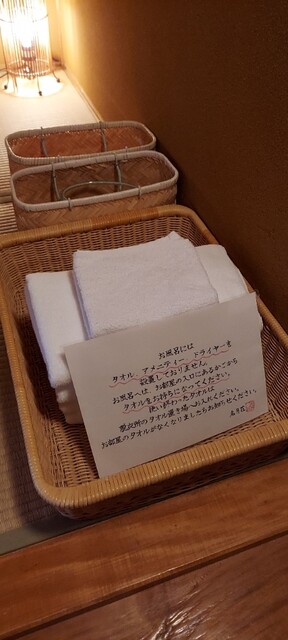 お風呂には
タオル、アメニティー ドライヤーを
設置しておりません。
お風呂へは、お部屋の入口にあるかごから
タオルをお持ちになってください。
使い終わったタオルは
脱衣所のタオル置き場へお入れください。
お部屋のタオルがなくなりましたらお知らせください。